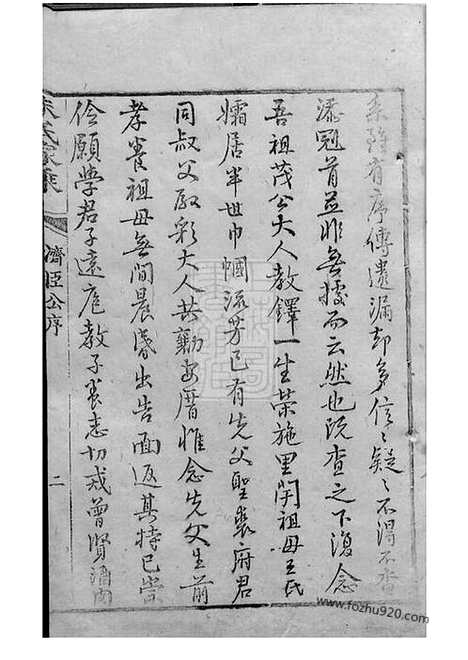 系雖有序傳遺漏却多信信疑疑不得不杳
添冠首並非無據而云然也既查之下復念
吾祖茂公大人教鐸一生荣施里閈祖母王氏
孀居半世巾幗流芳已有先父聖裘府君
同叔父殿彩大人共勷安厝惟念先父生前
孝養祖母無間晨昏出告面返其持已嘗
伦願學君子遠庭教子養志切戒曾賢濟南
朱氏家乘
濟臣公序
二
www.fozhu920.com